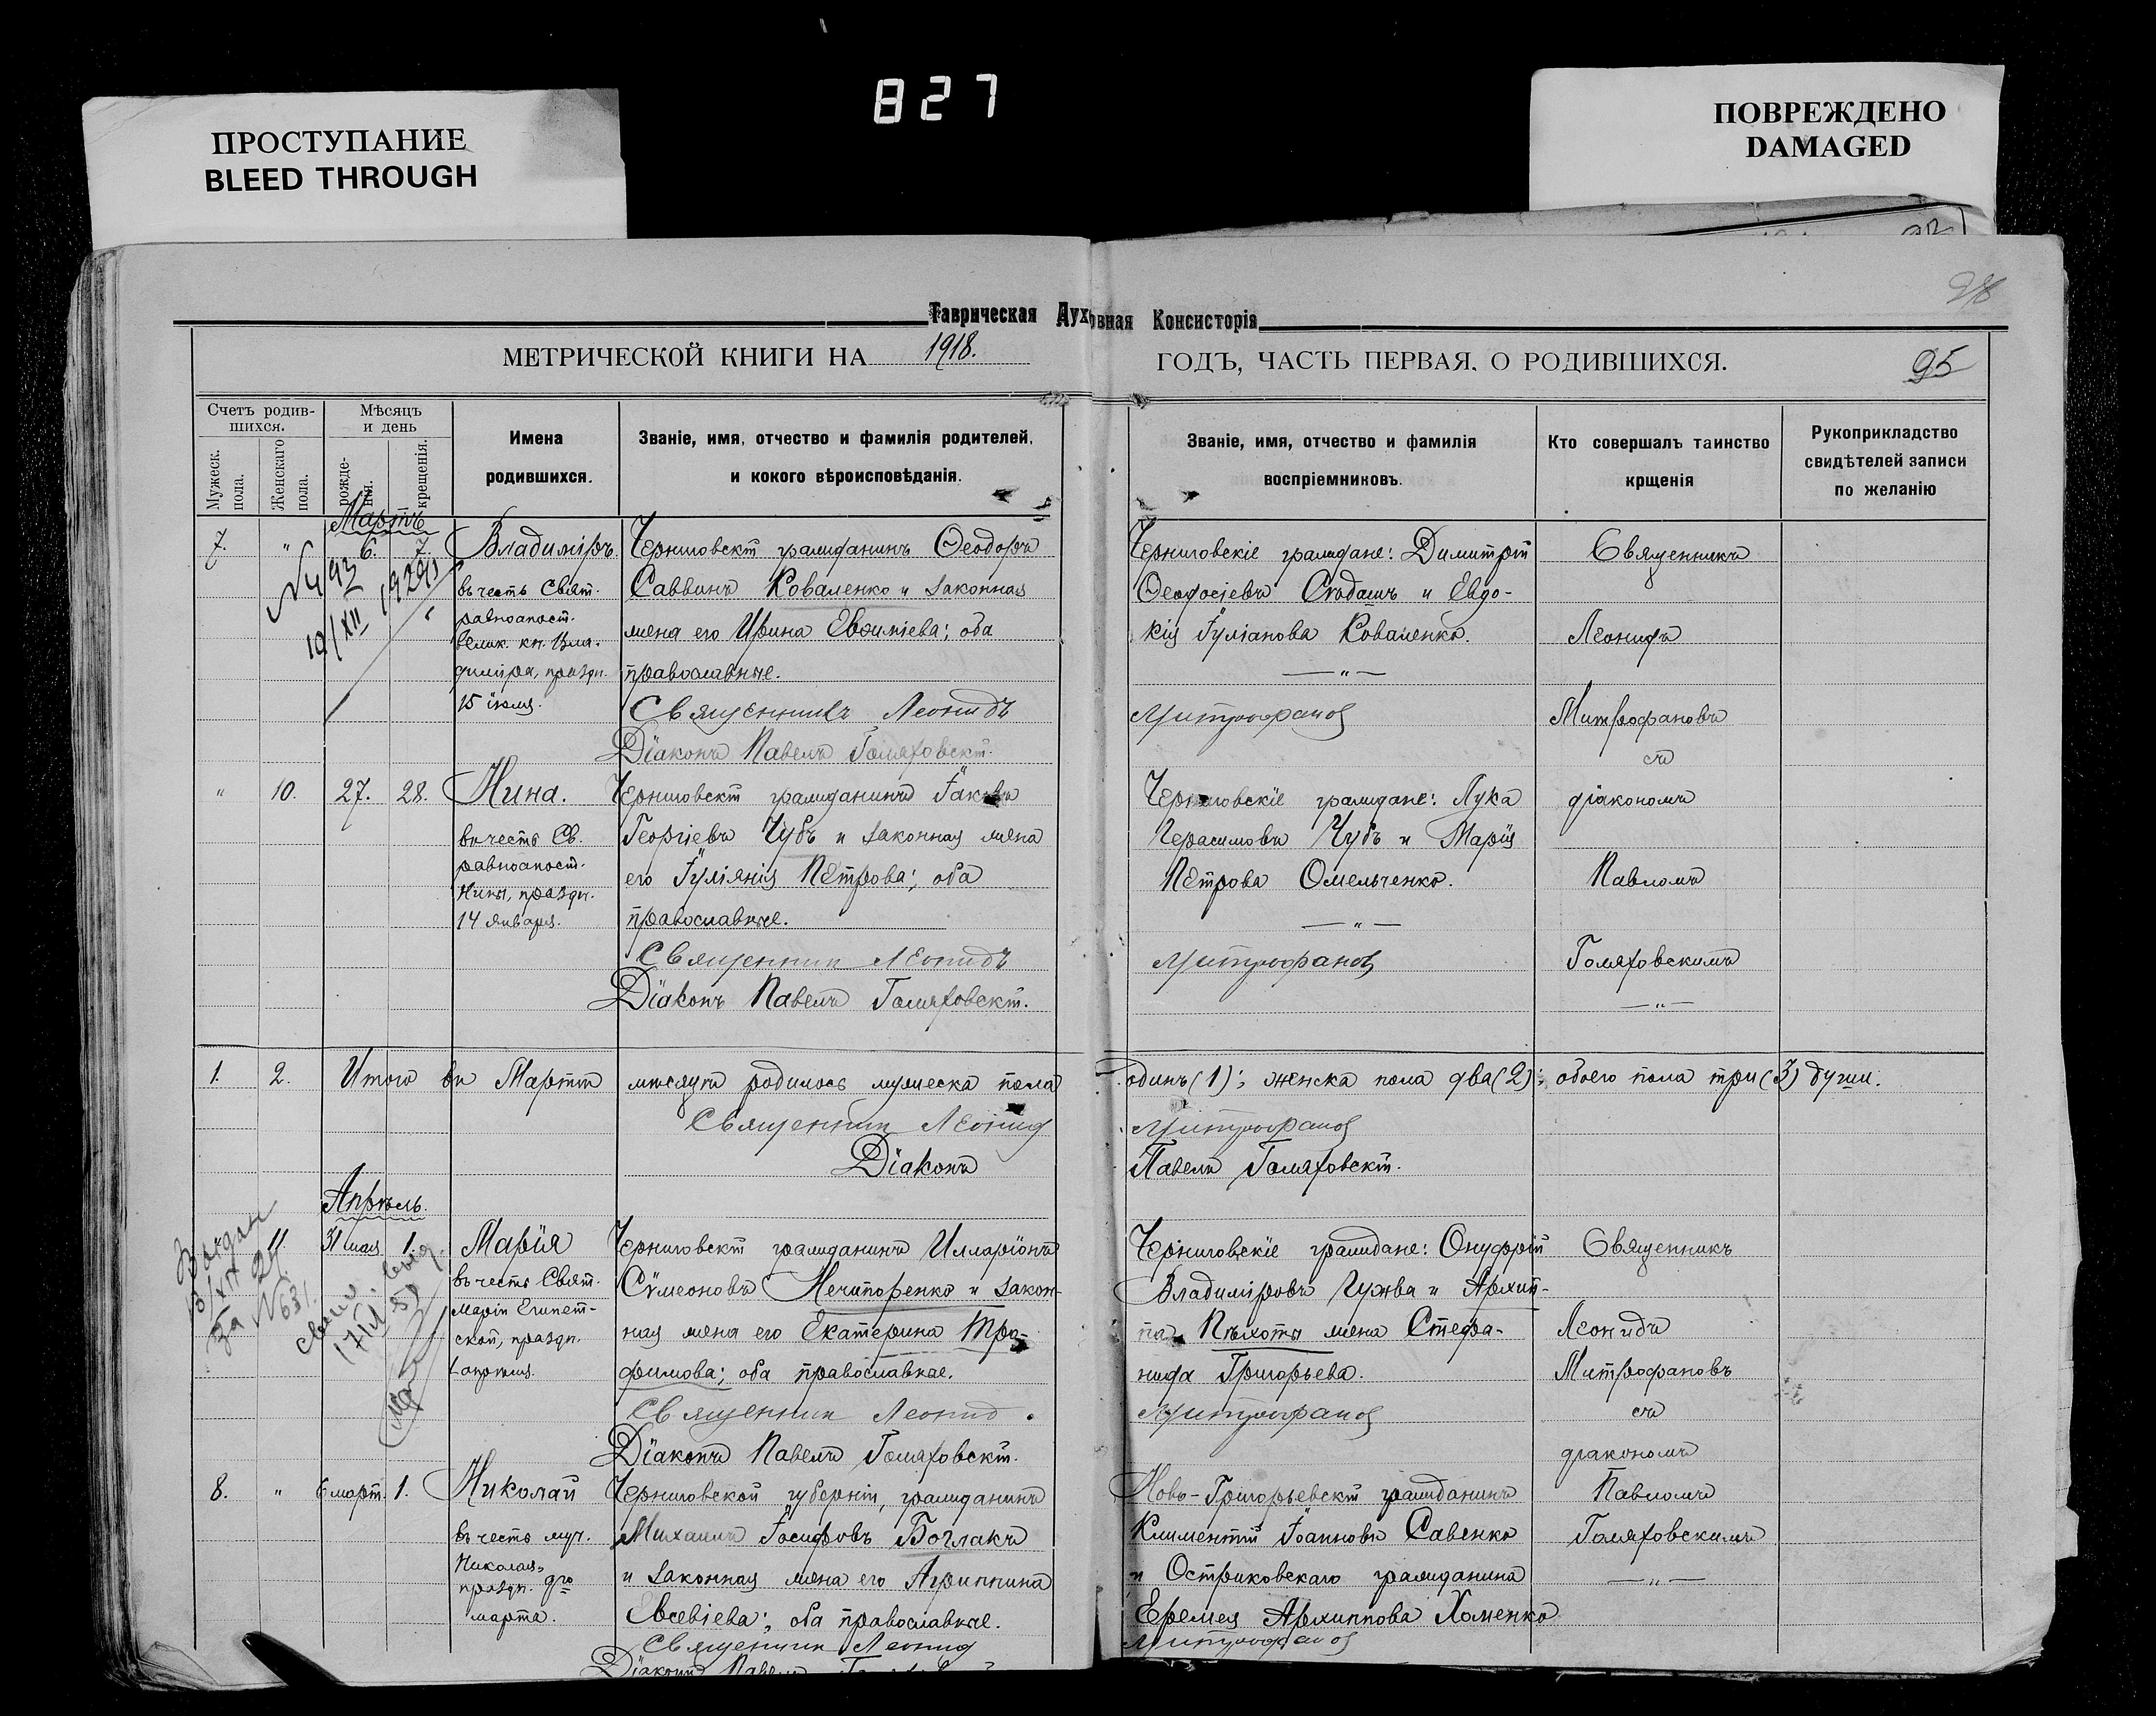 827
ПРОСТУПАНИЕ
BLEED THROUGH
ПОВРЕЖДЕНО
DAMAGED
Таврическая Духовная Консисторія
МЕТРИЧЕСКОЙ КНИГИ НА 1918. ГОДЪ, ЧАСТЬ ПЕРВАЯ, О РОДИВШИХСЯ.
95
Счетъ родив-
шихся.
Мужеск.
пола.
Женскаго
пола.
Мѣсяцъ
и день
рожде-
нія.
крещенія.
Имена
родившихся.
Званіе, имя, отчество и фамилія родителей,
и кокого вѣроисповѣданія.
Званіе, имя, отчество и фамилія
воспріемниковъ.
Кто совершалъ таинство
крщенія
Рукоприкладство
свидѣтелей записи
по желанію
Мартъ
7. " 6. 7. Владиміръ.
въ честь Свят.
равноапост.
велик. кн. Вла-
диміра, праздн.
15 іюля.
Черниговскій гражданинъ Ѳеодоръ
Саввинъ Коваленко и законная
жена его Ирина Евѳиміева; оба
православные.
Священникъ Леонидъ Митрофановъ
Діаконъ Павелъ Голяховскій.
Черниговскіе граждане: Димитрій
Ѳеодосіевъ и Евдо-
кія Іуліанова Коваленко.
— " —
Священникъ
Леонидъ
Митрофановъ
съ
діакономъ
Павломъ
Голяховскимъ
— " —
" 10. 27. 28. Нина.
въ честь Св.
равноапост.
Нины, праздн.
14 января.
Черниговскій гражданинъ Іаковъ
Георгіевъ Чубъ и законная жена
его Іуліанія Петрова; оба
православные.
Священник Леонидъ Митрофановъ
Діаконъ Павелъ Голяховскій.
Черниговскіе граждане: Лука
Герасимовъ Чубъ и Марія
Петрова Омельченко.
— " —
1. 2. Итого въ Мартѣ мѣсяцѣ родилось мужеска пола одинъ (1); женска пола два (2); обоего пола три (3) души.
Священник Леонид Митрофанов
Діаконъ Павелъ Голяховскій.
Апрѣль.
11. 31 мая 1. Марія
въ честь Свят.
Маріи Египет-
ской, праздн.
1 апрѣля.
Черниговскій гражданинъ Илларіонъ
Сѵмеоновъ Нечипоренко и закон-
ная жена его Екатерина Тро-
фимова; оба православные.
Священник Леонид Митрофанов
Діаконъ Павелъ Голяховскій.
Черниговскіе граждане: Онуфрій
Владиміровъ Гужва и Архип-
па Пѣхоты жена Стефа-
нида Григорьева.
Священникъ
Леонидъ
Митрофановъ
съ
діакономъ
Павломъ
Голяховскимъ
— " —
8. " 6 март. 1. Николай
въ честь муч.
Николая,
праздн. 9го
марта.
Черниговской губерніи, гражданинъ
Михаилъ Іосифовъ Боглакъ
и законная жена его Агриппина
Евсевіева; оба православные.
Священник Леонид Митрофанов
Діаконъ Павелъ
Ново-Григорьевскій гражданинъ
Климентій Іоанновъ Савенко
и Остриковскаго гражданина
Еремея Архиппова Хоменко